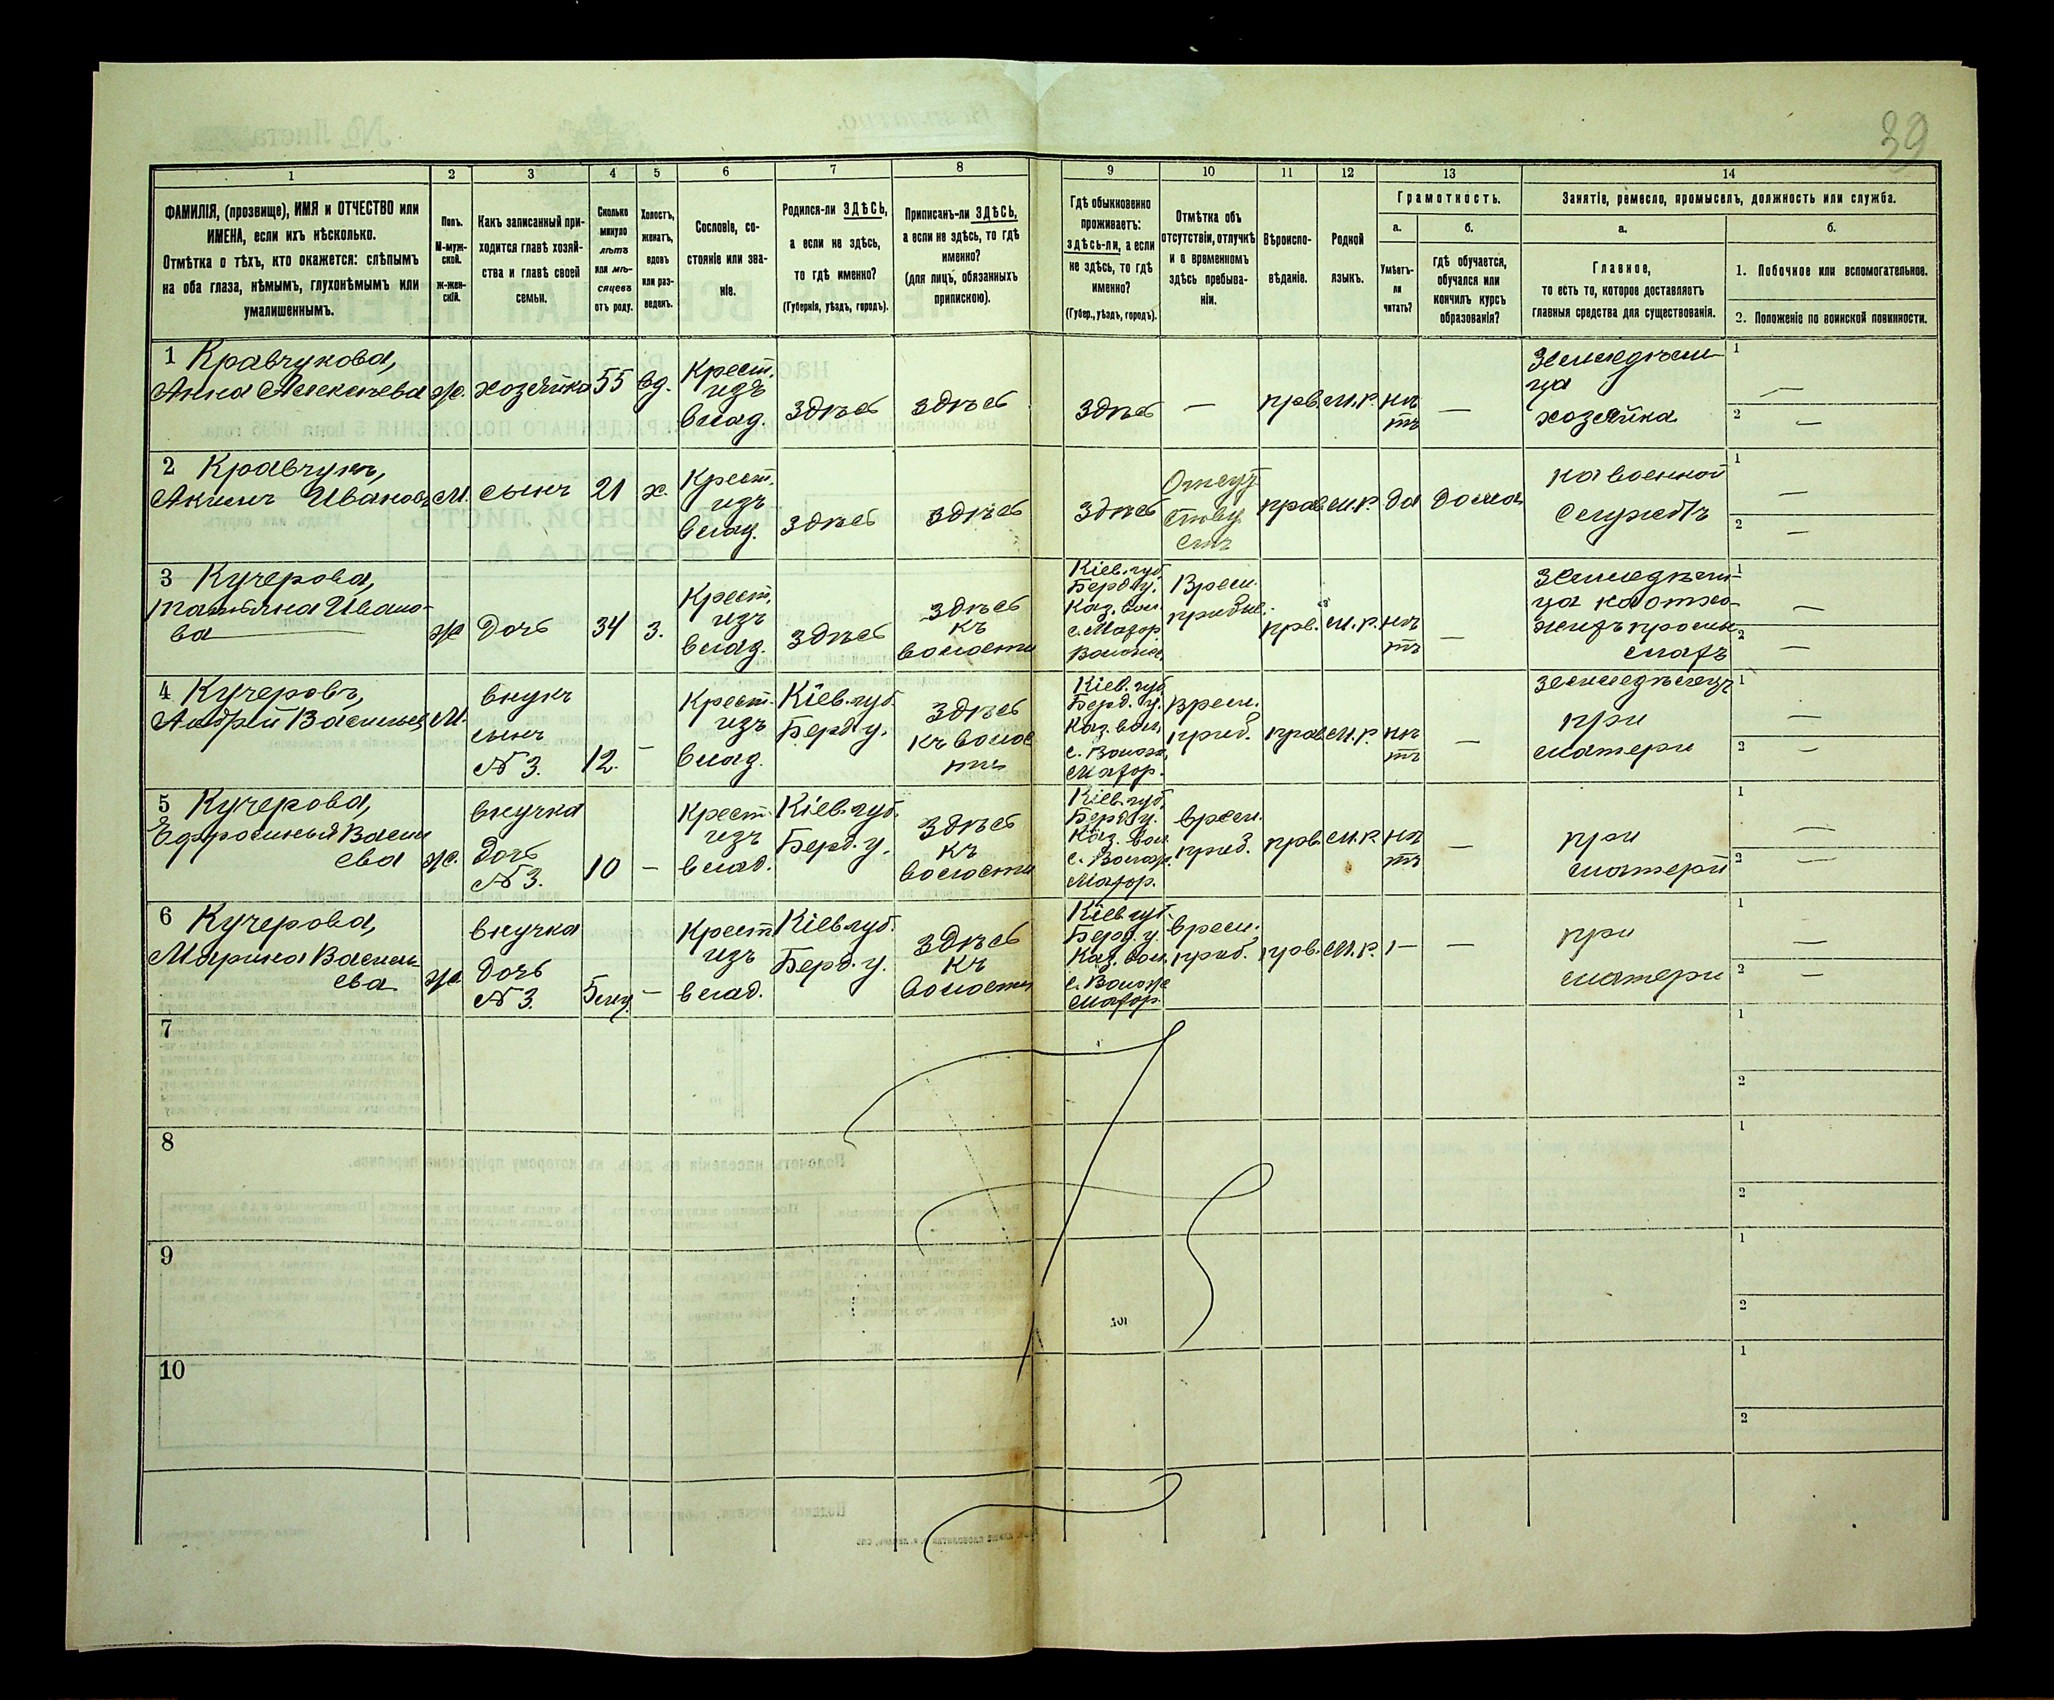 39
1 2 3 4 5 6 7 8 9 10 11 12 13 14
ФАМИЛІЯ, (прозвище), ИМЯ и ОТЧЕСТВО или
ИМЕНА, если ихъ нѣсколько.
Отмѣтка о тѣхъ, кто окажется: слѣпымъ
на оба глаза, нѣмымъ, глухонѣмымъ или
умалишеннымъ.
Полъ.
М-муж-
ской.
ж-жен-
скій.
Какъ записанный при-
ходится главѣ хозяй-
ства и главѣ своей
семьи.
Сколько
минуло
лѣтъ
или мѣ-
сяцевъ
отъ роду.
Холостъ,
женатъ,
вдовъ
или раз-
веденъ.
Сословіе, со-
стояніе или зва-
ніе.
Родился-ли ЗДѢСЬ,
а если не здѣсь,
то гдѣ именно?
(Губернія, уѣздъ, городъ).
Приписанъ-ли ЗДѢСЬ,
а если не здѣсь, то гдѣ
именно?
(для лицъ, обязанныхъ
припискою).
Гдѣ обыкновенно
проживаетъ:
здѣсь-ли, а если
не здѣсь, то гдѣ
именно?
(Губер., уѣздъ, городъ).
Отмѣтка объ
отсутствіи, отлучкѣ
и о временномъ
здѣсь пребыва-
ніи.
Вѣроиспо-
вѣданіе.
Родной
языкъ.
Грамотность.
а.
Умѣетъ-
ли
читать?
б.
гдѣ обучается,
обучался или
кончилъ курсъ
образованія?
Занятіе, ремесло, промыселъ, должность или служба.
а.
Главное,
то есть то, которое доставляетъ
главныя средства для существованія.
б.
1. Побочное или вспомогательное.
2. Положеніе по воинской повинности.
1 Кравчукова,
Анна Алексѣева
ж.
хозяйка
55
вд.
Крест.
изъ
влад.
здѣсь
здѣсь
здѣсь
—
прв.
м.р.
нѣ
тъ
—
земледѣли
ца
хозяйка
1 —
2 —
2 Кравчукъ,
Акимъ Ивановъ
М.
сынъ
21
х.
Крест.
изъ
влад.
здѣсь
здѣсь
здѣсь
Отсут
ствуу
етъ
прав.
м.р.
да
дома
на военной
службѣ
1 —
2 —
3 Кучерова,
Татьяна Ивано-
ва
ж
дочь
34
з.
Крест.
изъ
влад.
здѣсь
здѣсь
къ
волости
Кіев. губ.
Берд. у.
Каз. вол.
с. Маіор.
Волож.
Врем.
прибыв.
прв.
м.р.
нѣ
тъ
—
земледѣли-
ца на отхо-
жихъ промы
слахъ
1 —
2 —
4 Кучеровъ,
Андрей Васильев
М.
внукъ
сынъ
№ 3.
12.
—
Крест.
изъ
влад.
Кіев. губ.
Берд. у.
здѣсь
къ волос
ти
Кіев. губ.
Берд. у.
Каз. вол.
с. Волож.
Маіор.
врем.
приб.
прав.
м.р.
нѣ
тъ
—
земледѣлецъ
при
матери
1 —
2 —
5 Кучерова,
Ефросинья Васи
ева
ж.
внучка
дочь
№ 3.
10
—
Крест.
изъ
влад.
Кіев. губ.
Берд. у.
здѣсь
къ
волости
Кіев. губ.
Берд. у.
Каз. вол.
с. Волож.
Маіор.
врем.
приб.
прв.
м.р.
нѣ
тъ
—
при
матери
1 —
2 —
6 Кучерова,
Марина Василь
ева
ж.
внучка
дочь
№ 3.
5 мѣ.
—
Крест
изъ
влад.
Кіев. губ.
Берд. у.
здѣсь
къ
волости
Кіев. губ.
Берд. у.
Каз. вол.
с. Волож
Маіор.
врем.
приб.
прв.
м.р.
—
—
при
матери
1 —
2 —
7
1
2
8
1
2
9
1
2
10
1
2